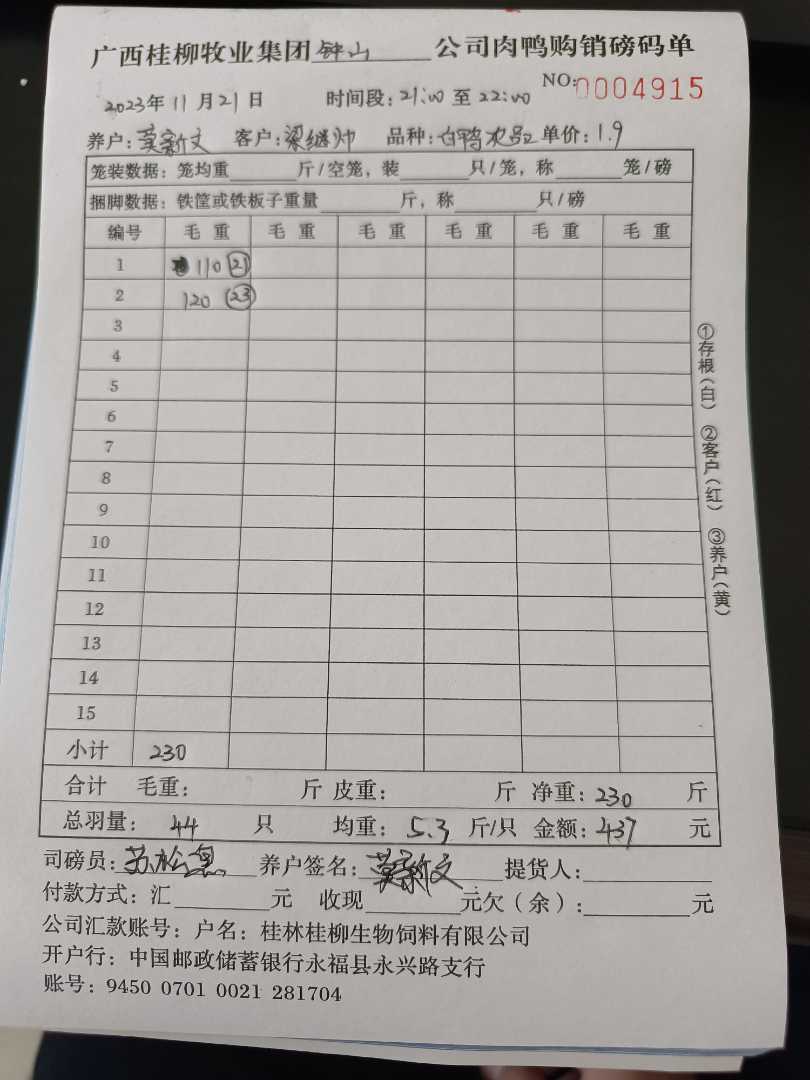 广西桂柳牧业集团钟山公司肉鸭购销磅码单
NO:0004915
2023年11月21日 时间段:21:00至22:00
养户: 客户:梁继帅 品种:白鸭 单价:1.9
笼装数据:笼均重 斤/空笼,装 只/笼,称 笼/磅
捆脚数据:铁筐或铁板子重量 斤,称 只/磅
编号 毛 重 毛 重 毛 重 毛 重 毛 重 毛 重
1 110 21
2 120 23
3
4
5
6
7
8
9
10
11
12
13
14
15
小计 230
合计 毛重: 斤 皮重: 斤 净重:230 斤
总羽量:44 只 均重:5.3 斤/只 金额:437 元
司磅员:苏松 养户签名: 提货人:
付款方式:汇 元 收现 元欠(余): 元
公司汇款账号:户名:桂林桂柳生物饲料有限公司
开户行:中国邮政储蓄银行永福县永兴路支行
账号:9450 0701 0021 281704
①存根(白) ②客户(红) ③养户(黄)